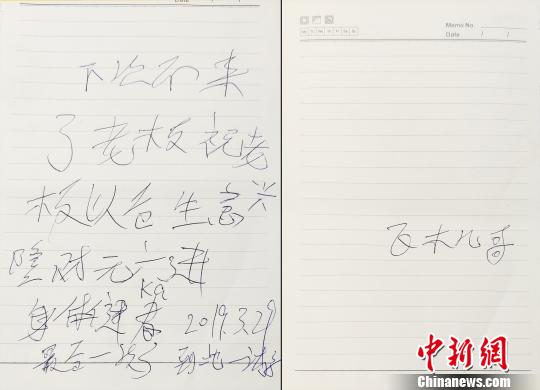 Date / /
下次不来
了老板祝老
板以后生意兴
隆财元广进
Ka
身体健春 2019.3.29
最后一次了 到此一游
Memo No.
Date / /
瓦木几哥
中新网
Chinanews.com